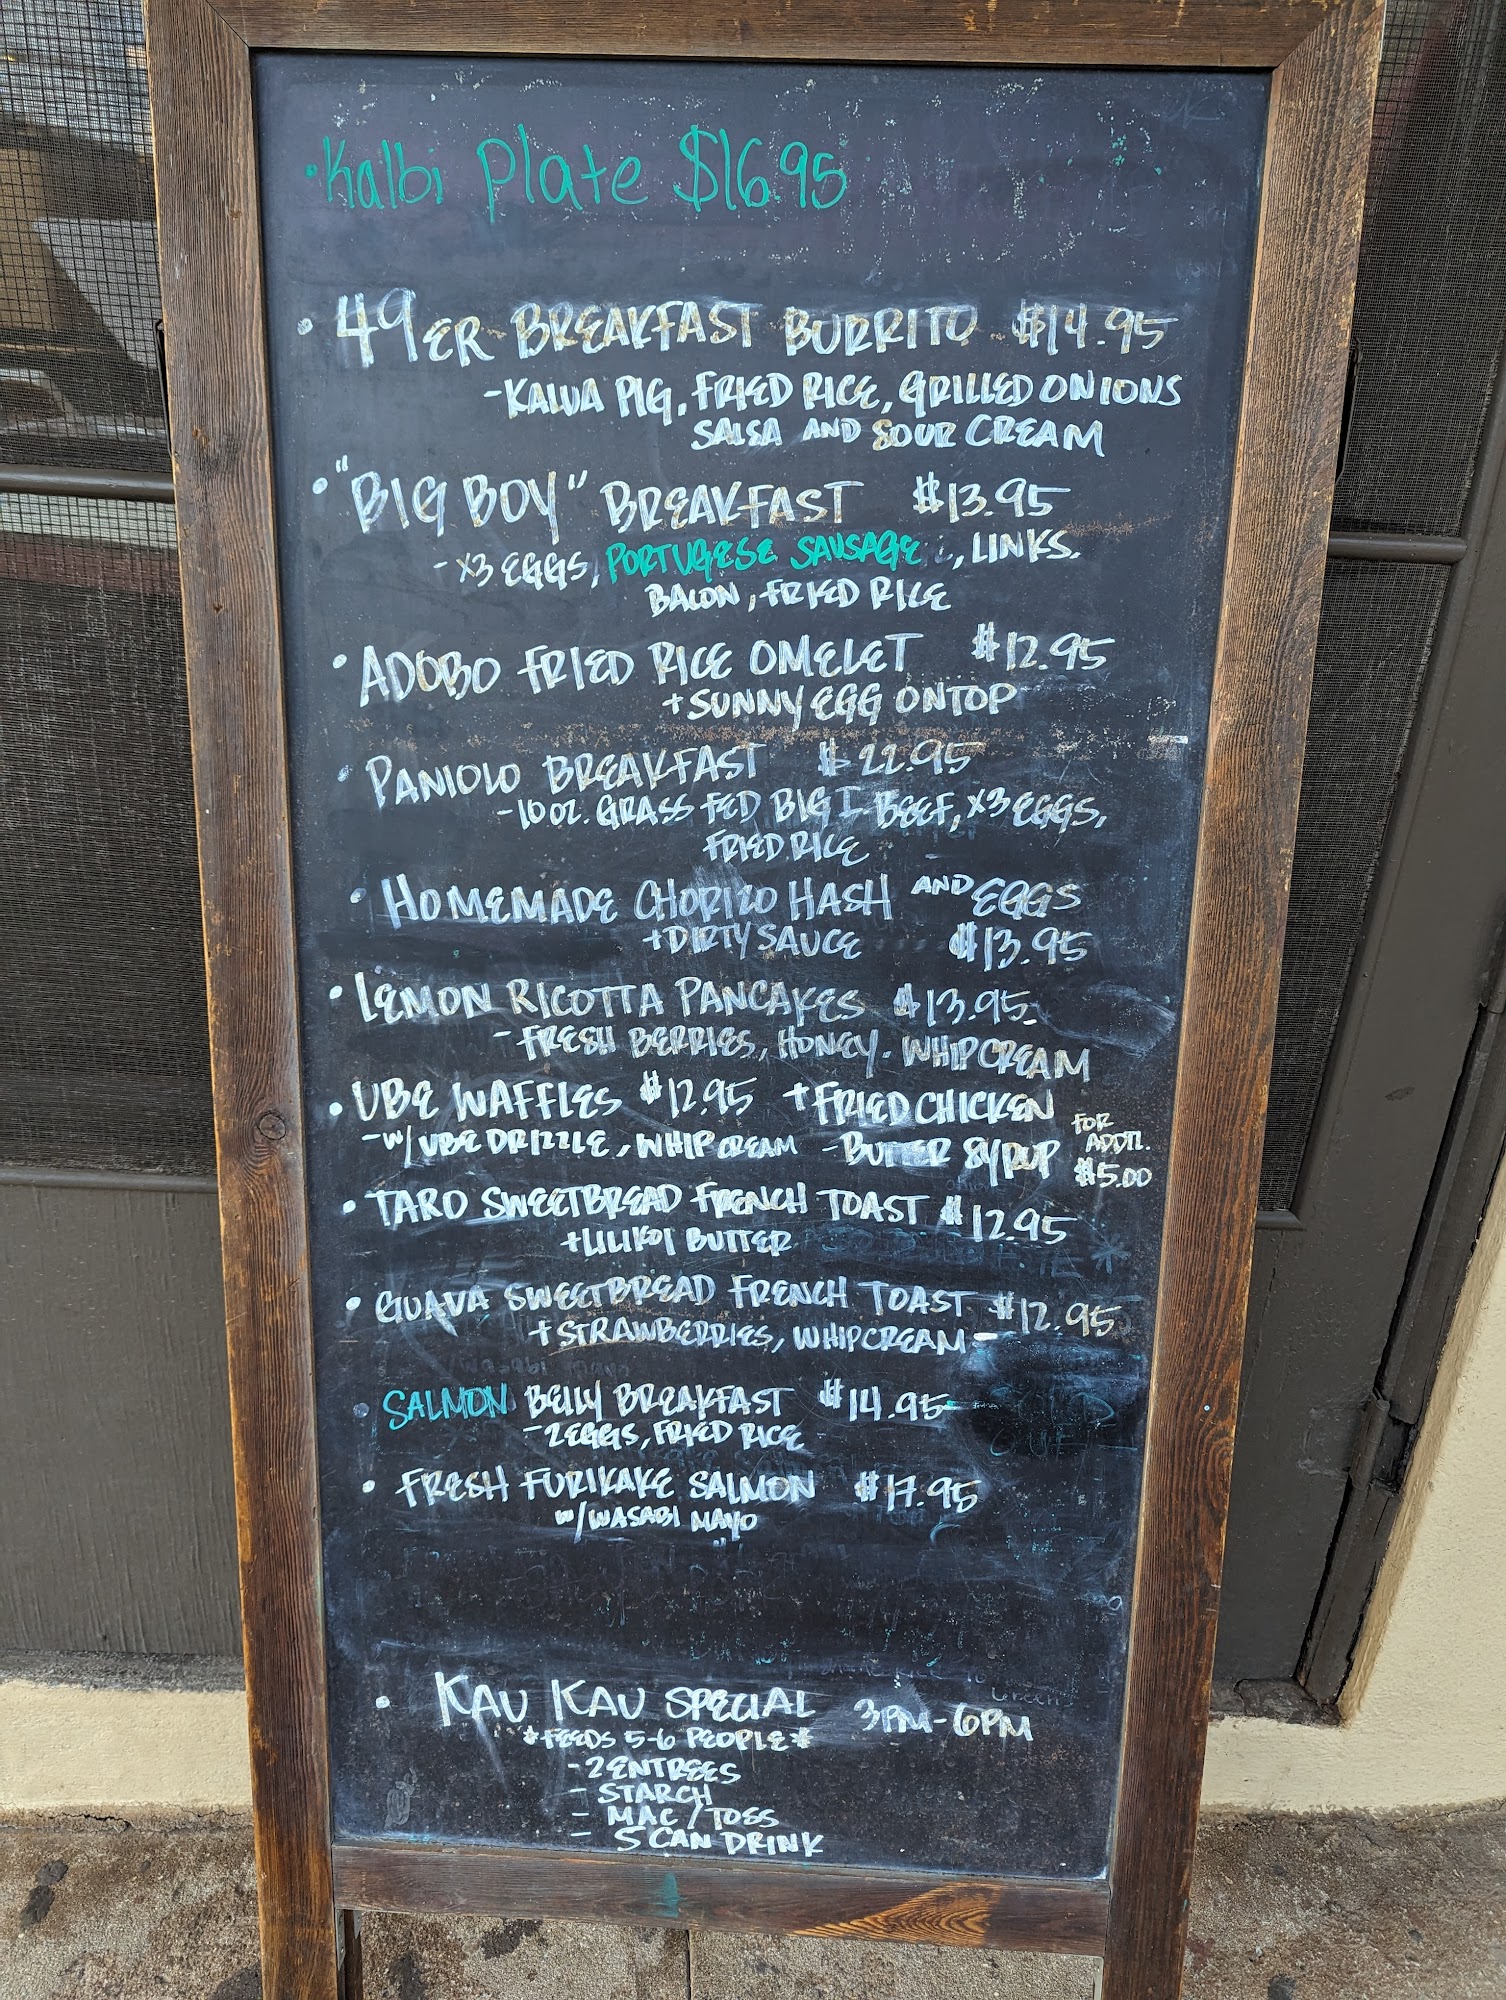 • Kalbi Plate $16.95
• 49ER BREAKFAST BURRITO $14.95
- KALUA PIG, FRIED RICE, GRILLED ONIONS
SALSA AND SOUR CREAM
• "BIG BOY" BREAKFAST $13.95
- X3 EGGS, PORTUGESE SAUSAGE, LINKS,
BACON, FRIED RICE
• ADOBO FRIED RICE OMELET $12.95
+ SUNNY EGG ON TOP
• PANIOLO BREAKFAST $22.95
- 10 OZ. GRASS FED BIG I BEEF, X3 EGGS,
FRIED RICE
• HOMEMADE CHORIZO HASH AND EGGS
+ DIRTY SAUCE $13.95
• LEMON RICOTTA PANCAKES $13.95
- FRESH BERRIES, HONEY, WHIP CREAM
• UBE WAFFLES $12.95 + FRIED CHICKEN FOR
- W/ UBE DRIZZLE, WHIP CREAM - BUTTER SYRUP ADDTL.
$5.00
• TARO SWEETBREAD FRENCH TOAST $12.95
+ LILIKOI BUTTER
• GUAVA SWEETBREAD FRENCH TOAST $12.95
+ STRAWBERRIES, WHIP CREAM
• SALMON BELLY BREAKFAST $14.95
- 2 EGGS, FRIED RICE
• FRESH FURIKAKE SALMON $17.95
W/ WASABI MAYO
• KAU KAU SPECIAL 3PM - 6PM
*FEEDS 5-6 PEOPLE*
- 2 ENTREES
- STARCH
- MAC / TOSS
- 5 CAN DRINK